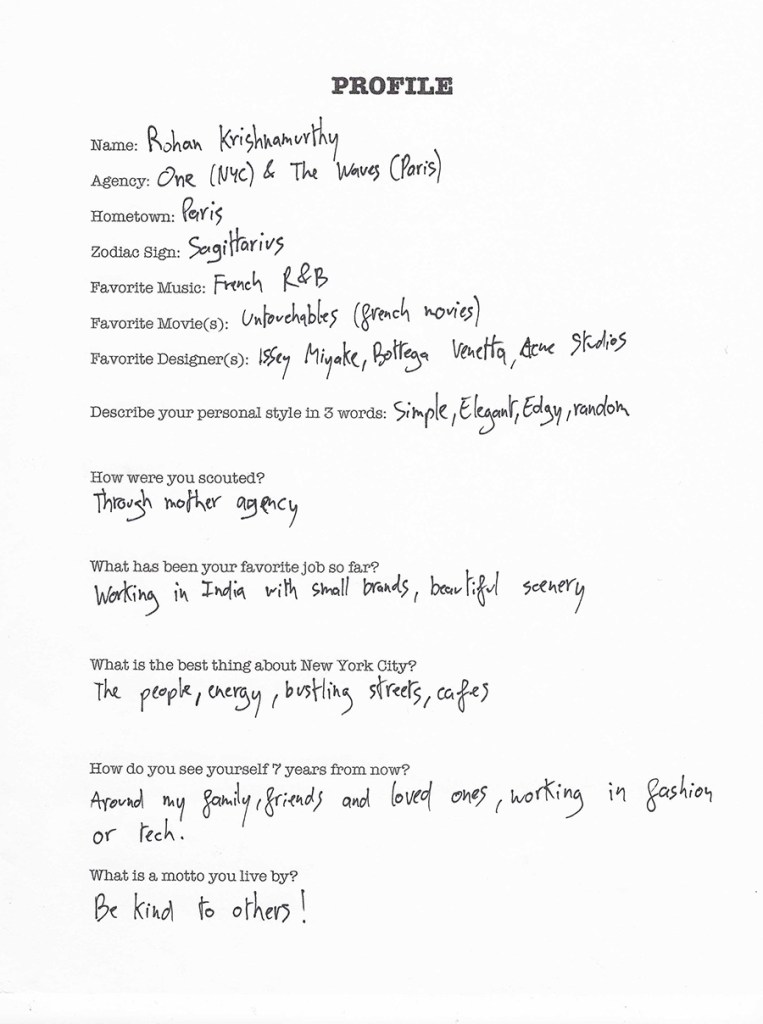 PROFILE
Name: Rohan Krishnamurthy
Agency: One (NYC) & The Waves (Paris)
Hometown: Paris
Zodiac Sign: Sagittarius
Favorite Music: French R&B
Favorite Movie(s): Untouchables (french movies)
Favorite Designer(s): Issey Miyake, Bottega Venetta, Acne Studios
Describe your personal style in 3 words: Simple, Elegant, Edgy, random
How were you scouted?
Through mother agency
What has been your favorite job so far?
Working in India with small brands, beautiful scenery
What is the best thing about New York City?
The people, energy, bustling streets, cafes
How do you see yourself 7 years from now?
Around my family, friends and loved ones, working in fashion
or tech.
What is a motto you live by?
Be kind to others!